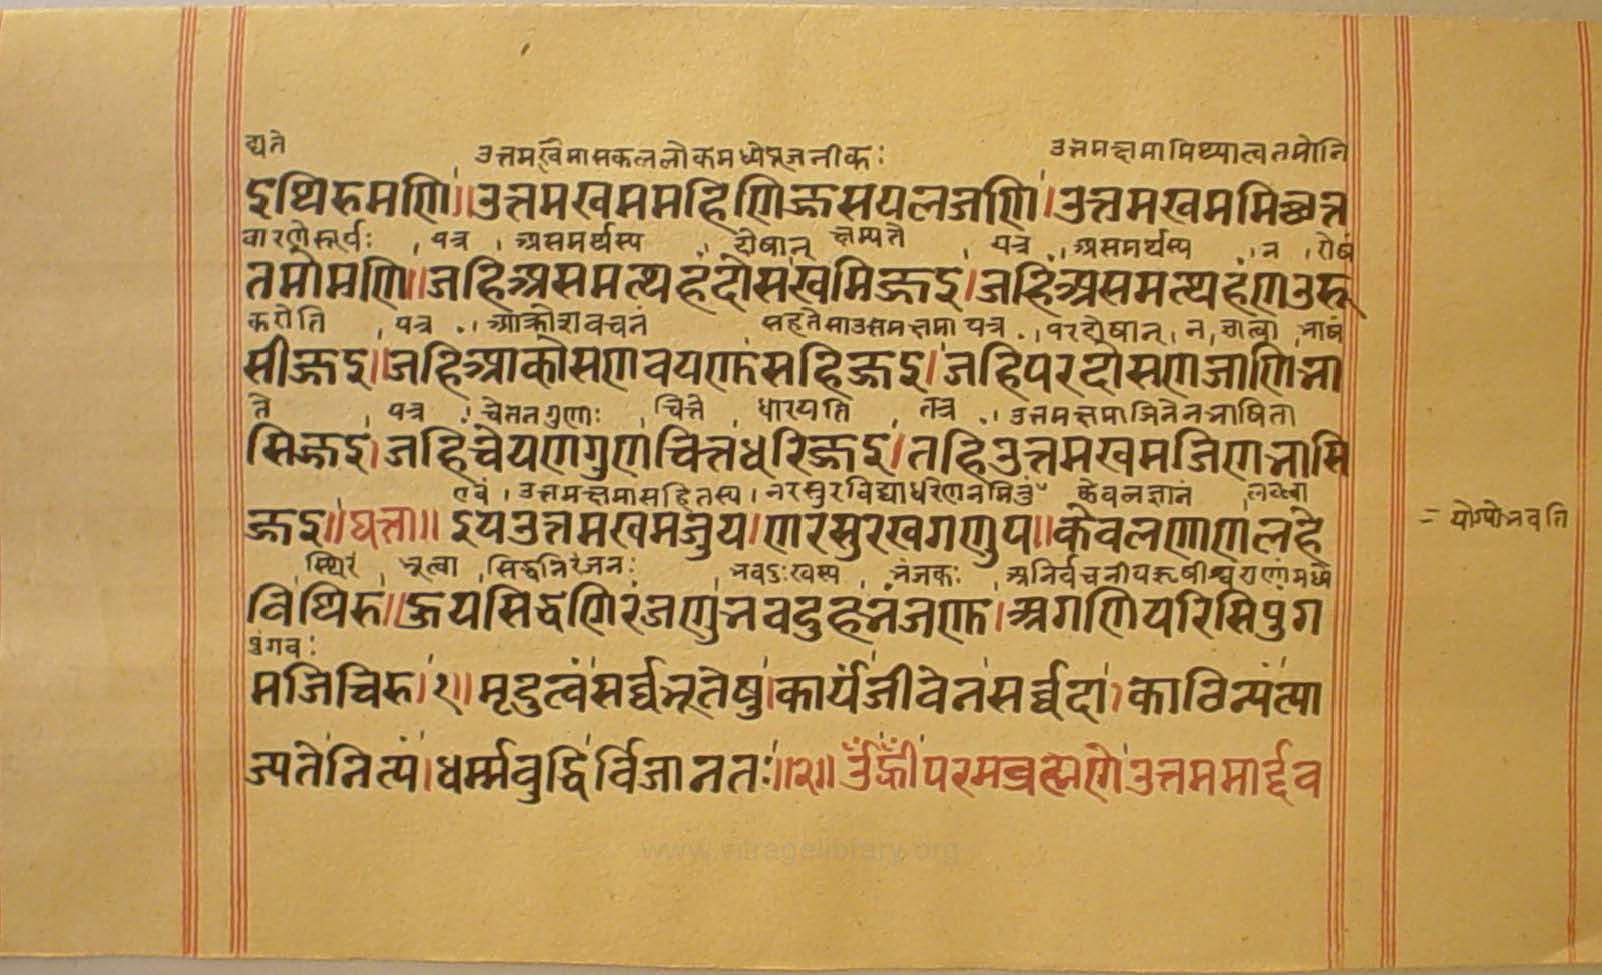 द्यते
उत्तमखमासकललोकमध्येपूजनीकः
उत्तमक्षमामिथ्यात्वतमोनि
इथिरुमणि॥उत्तमखममहिणिज्जसयलजणि।उत्तमखममिच्छत्त
वारणेसूर्यः । यत्र । असमर्थस्य । दोषान् क्षम्यते । यत्र । असमर्थस्य । न । रोषं
तमोमणि॥जहिअसमत्थहंदोसखमिज्जइ।जहिअसमत्थहंणउरू
करोति । यत्र । आक्रोशवचनं सहतेसाउत्तमक्षमा यत्र । परदोषान् । न । भाषं
सीज्जइ॥जहिआकोसणवयणंसहिज्जइ।जहिपरदोसणजाणिभा
ते । यत्र । चेतनगुणः । चित्ते । धारयति । तत्र । उत्तमक्षमाजिनेनभाषिता
सिज्जइ।जहिचेयणगुणचित्तधरिज्जइ।तहिउत्तमखमजिणभासि
एवं । उत्तमक्षमासहितस्य । नरसुरविद्याधरेणनमितुं केवलज्ञानं लब्ध्वा
ज्जइ॥घत्ता॥ इयउत्तमखमजुय।णरसुरखगणुय॥केवलणाणंलहे
= योग्योभवति
स्थिरं । भूत्वा । सिद्धनिरंजनः । भवदुःखस्य । भंजकः । अनिर्वचनीयऋषीश्वराणांमध्ये
विथिरु॥ऊयसिद्धणिरंजणुभवदुहभंजणु।अगणियरिसिपुंग
पुंगवः
मजिचिरु।१॥मृदुत्वंसर्व्वभूतेषु।कार्यंजीवेनसर्व्वदा।काठिन्यंत्या
ज्यतेनित्यं।धर्म्मबुद्धिर्विजानतः॥२॥ॐह्रीँपरमब्रह्मणेउत्तममार्द्दव
www.vitragelibrary.org